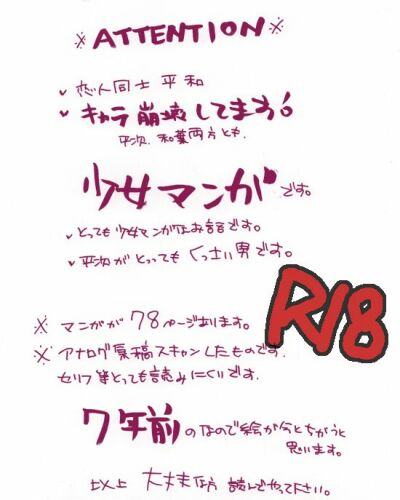 ※ ATTENTION ※
✓ 恋人同士 平和
✓ キャラ崩壊してます!
平次、和葉両方とも.
少女マンガです。
✓ とっても少女マンガなお話です。
✓ 平次がとってもくっさい男です。
R18
※ マンガが78ページあります。
※ アナログ原稿スキャンしたものです.
セリフ等とっても読みにくいです.
7年前のなので絵が今とちがうと
思います。
以上 大丈夫な方 読んでやって下さい。